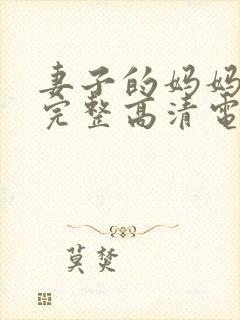 妻子的妈妈
完整高清电
莫焚